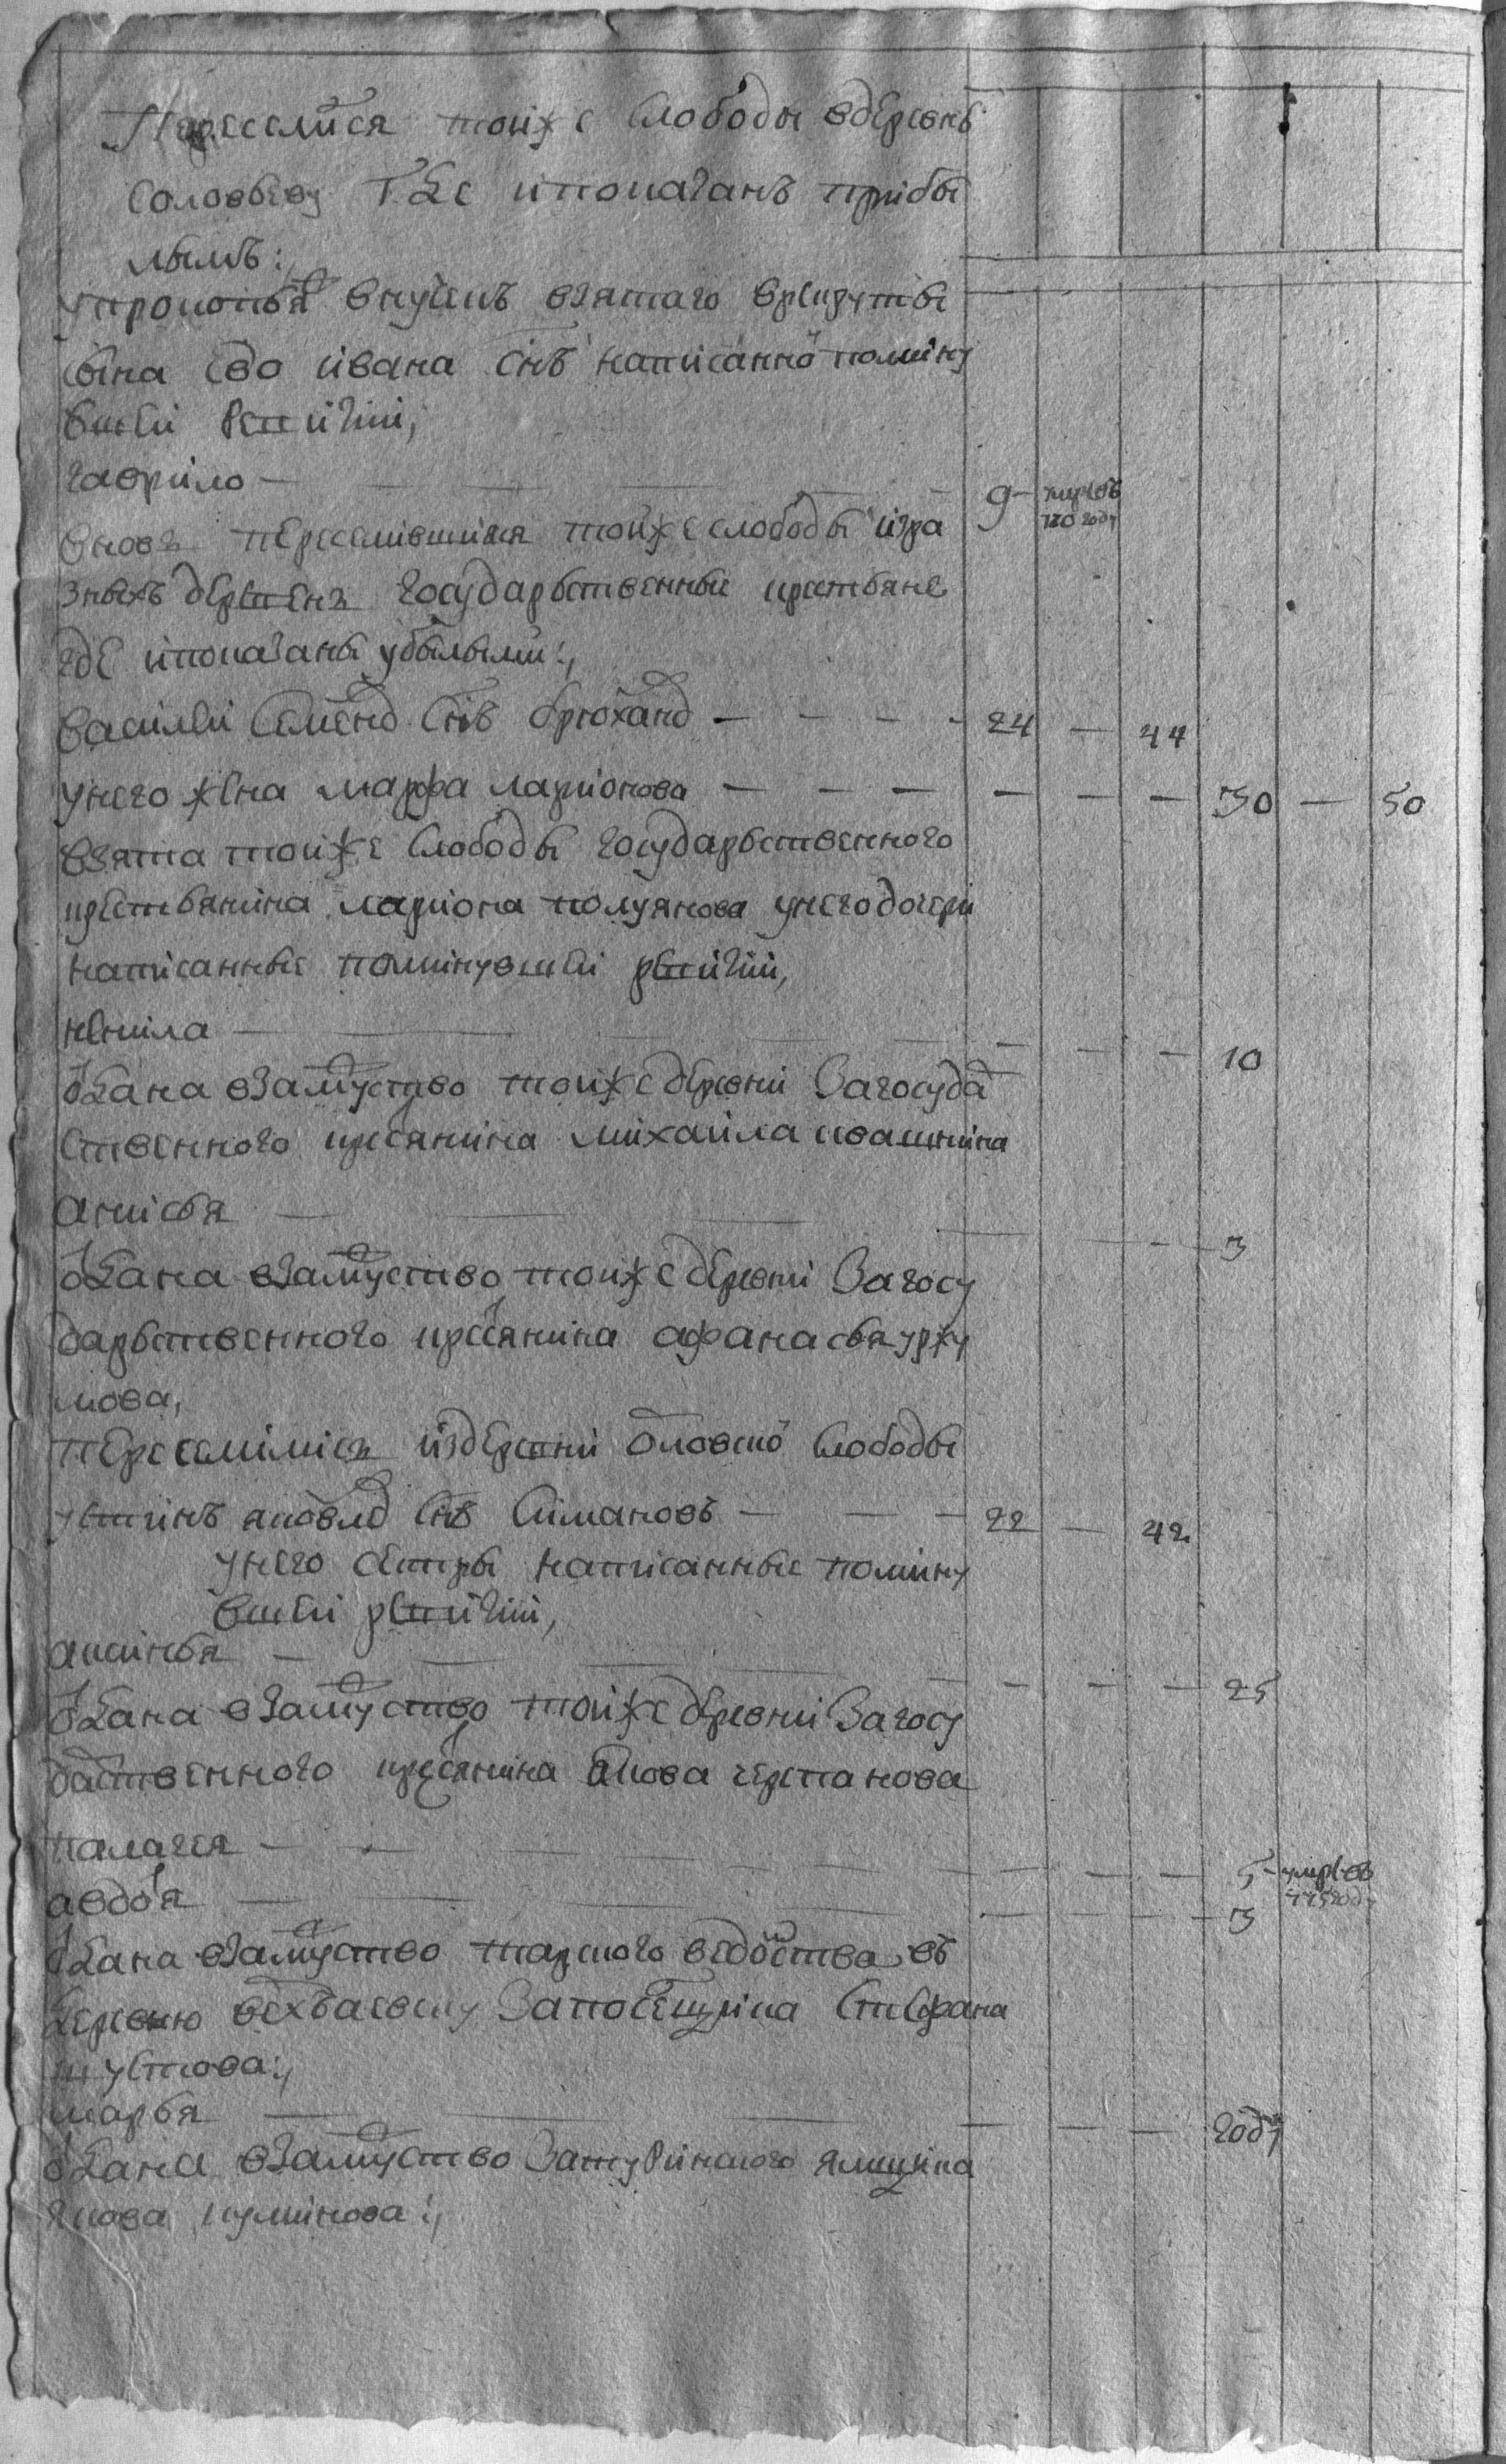 Переселился тойже слободы вдеревнъ
соловьеву где ипоказанъ прибы
лымъ:,
упрокопья внукъ взятаго врекруты
сына ево ивана снъ написанно помину
вшей ревизии,
гаврило — 9 — умреъ 770 году
вновь переселившиися тойже слободы изра
зныхъ деревень государьственные крестьяне
где ипоказаны убылыми:,
василеи семено снъ брюхано — 24 — 44
унего жена марфа ларионова — 30 — 50
взята тойже слободы государьственного
крестьянина лариона полуянова унего дочери
написанные поминувшеи ревизии,
ненила — 10
отдана взамуство тойже деревни загосуда
ственного кресянина михаила ивашкина
анисья — 3
отдана взамуство тойже деревни загосу
дарьственного кресянина афанасья уржу
мова,
переселились издеревни словско слободы
устинъ яковле снъ симановъ — 22 — 42
унего сестры написанные помину
вшеи ревизии,
аксинья — 25
отдана взамуство тойже деревни загосу
даственного кресянина якова черепанова
палагея — 5 — умре
авдотя — 3
отдана взамуство тарского ведомства въ
деревню загосещика стефана
шустова:,
марья — году
отдана взамуство ямщика
якова куминова:,